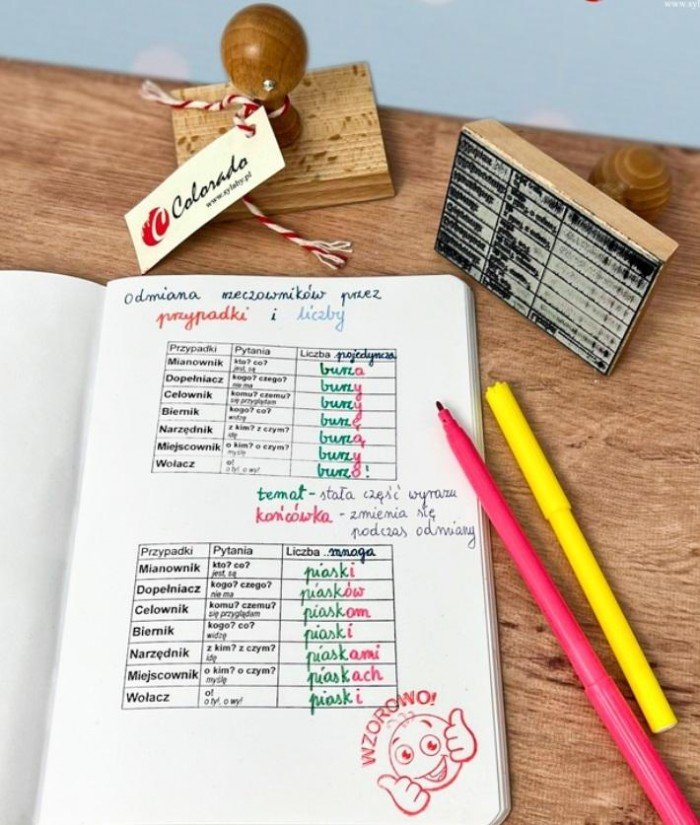 Colorado
www.sylaby.pl
Odmiana rzeczowników przez
przypadki i liczby
Przypadki Pytania Liczba pojedyncza
Mianownik kto? co? jest, są burza
Dopełniacz kogo? czego? nie ma burzy
Celownik komu? czemu? się przyglądam burzy
Biernik kogo? co? widzę burzę
Narzędnik z kim? z czym? idę burzą
Miejscownik o kim? o czym? myślę burzy
Wołacz o! o ty!, o wy! burzo!
temat - stała część wyrazu
końcówka - zmienia się
podczas odmiany
Przypadki Pytania Liczba ..mnoga
Mianownik kto? co? jest, są piaski
Dopełniacz kogo? czego? nie ma piasków
Celownik komu? czemu? się przyglądam piaskom
Biernik kogo? co? widzę piaski
Narzędnik z kim? z czym? idę piaskami
Miejscownik o kim? o czym? myślę piaskach
Wołacz o! o ty!, o wy! piaski
WZOROWO!